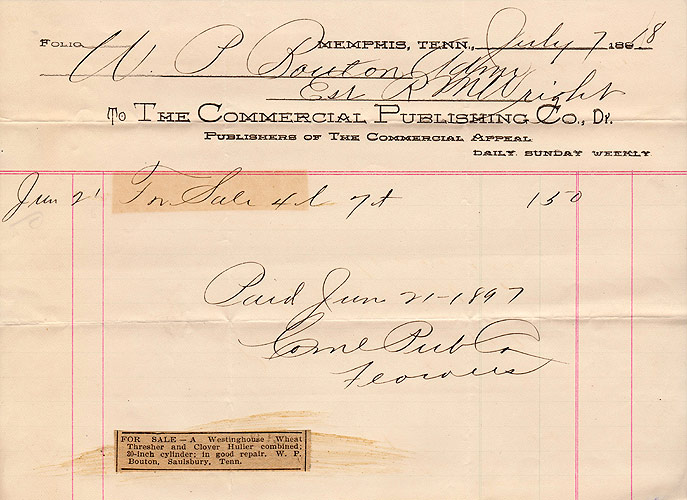 FOLIO MEMPHIS, TENN., July 7 189 8
W. P. Bouton, Adm
Est R M Wright
To THE COMMERCIAL PUBLISHING CO., Dr.
PUBLISHERS OF THE COMMERCIAL APPEAL
DAILY. SUNDAY WEEKLY
Jun 21 For Sale 4 l 7t 150
Paid Jun 21-1897
Coml Pub Co
FOR SALE — A Westinghouse Wheat
Thresher and Clover Huller combined;
30-inch cylinder; in good repair. W. P.
Bouton, Saulsbury, Tenn.